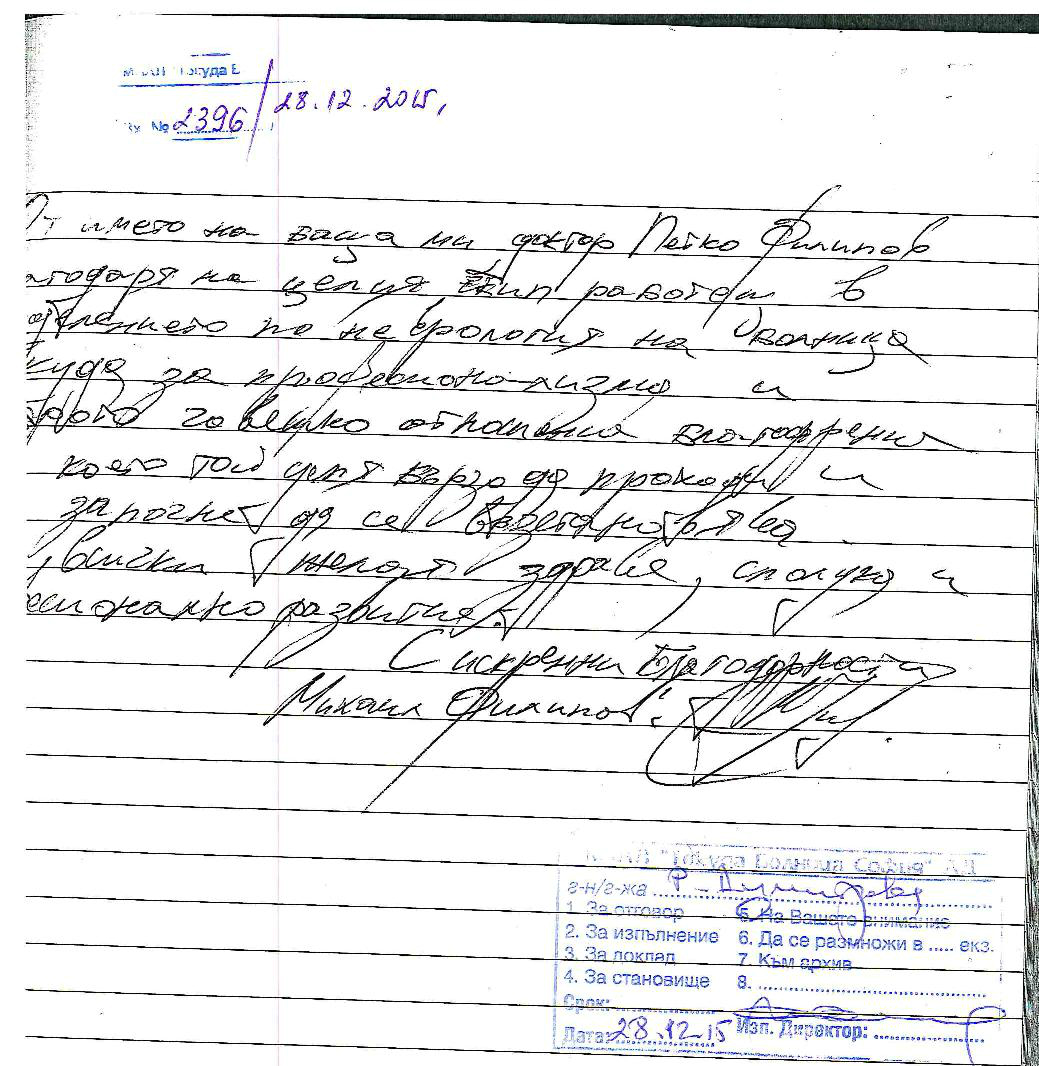 № 2396 / 28.12.2015,
От името на баща ми доктор Петко Филипов
агодаря на целия екип работещ в
отделението по неврология на болница
куда за професионализма и
човешко отношение благодарение
което той успя бързо да проходи и
започне да се възстановява.
всички желая здраве, сполука и
есионално развитие.
С искрени благодарности
Михаил Филипов:
"Токуда Болница София" АД
г-н/г-жа ... Р. Димитрова
1. За отговор 5. На Вашето внимание
2. За изпълнение 6. Да се размножи в ..... екз.
3. За доклад 7. Към архив
4. За становище 8. ........................
Срок: ...............
Дата: 28.12.15 Изп. Директор: ...............